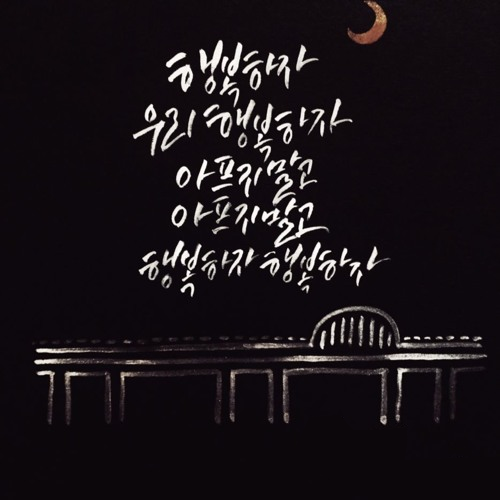 행복하자
우리 행복하자
아프지말고
아프지말고
행복하자 행복하자